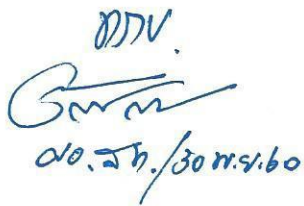 ทราบ.
ผอ.สท./30 พ.ย.60